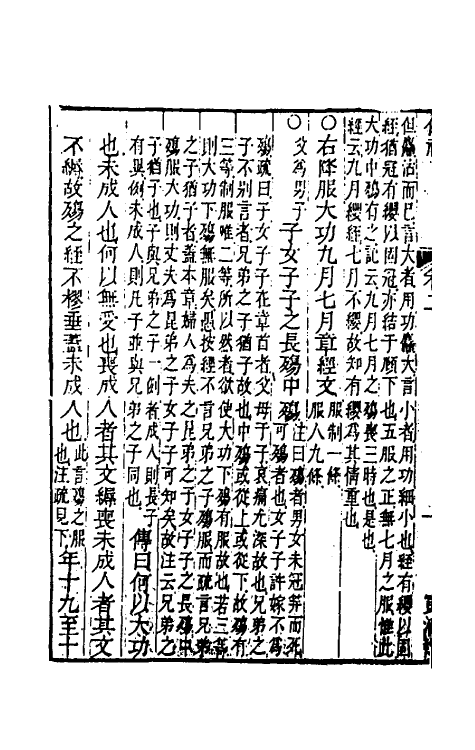 但麤沽而已言大者用功麤大言小者用功細小也絰有纓以固
絰猶冠有纓以固冠亦結于頤下也五服之正無七月之服惟此
大功中殤有之記云九月七月之殤喪三時也是也
經云九月纓絰七月不纓故知有纓爲其情重也
〇右降服大功九月七月章經文服制一條服人九條
〇父爲男子子女子子之長殤中殤注曰殤者男女未冠笄而死可殤者也女子子許嫁不爲
殤疏曰子女子子在章首者父母于子哀痛尤深故也兄弟之
子不別言者兄弟之子猶子故也中殤或從上或從下故殤有
三等制服唯二等所以然者欲使大功下殤有服故也若三等
則大功下殤無服矣愚按經不言兄弟之子殤服而疏言兄弟
之子猶子者蓋本章婦人爲夫之昆弟之子女子子之長殤中
殤服大功則丈夫爲昆弟之子女子子可知矣故注云兄弟之
子猶子也子與兄弟之子一例者成人則長子
有異例未成人則凡子並與兄弟之子同也傳曰何以大功
也未成人也何以無受也喪成人者其文縟喪未成人者其文
不縟故殤之絰不樛垂蓋未成人也此言殤之服也注疏見下年十九至十